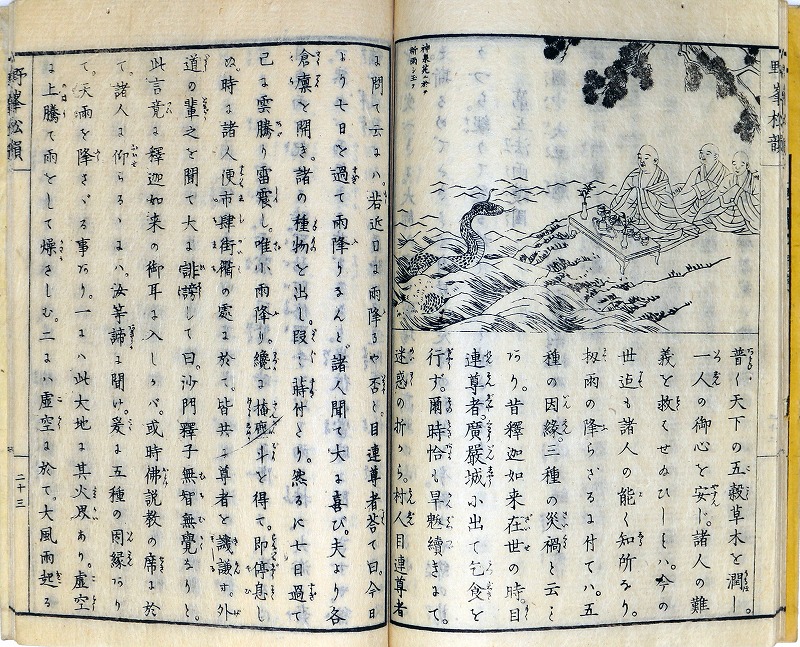 野峯松韻
神泉苑ニ於テ
祈雨シ玉フ
普く天下の五穀草木を潤し。
一人の御心を安じ。諸人の難
義を救くせ給ひしとハ。今の
世迄も諸人の能く知所なり。
扨雨の降らざるに付てハ。五
種の因縁。三種の災禍と云こと
あり。昔釋迦如来在世の時。目
連尊者。廣嚴城に出て乞食を
行ず。爾時恰も旱魃續きにて。
迷惑の折から。村人目連尊者
に問て云にハ。若近日に雨降るや否と。目連尊者荅て曰。今日
より七日を過て雨降りなんと。諸人聞て大に喜び。夫より各
倉廩を開き。諸の種物を出し。段々蒔付たり。然るに七日過て
已に雲騰り雷震し。唯小雨降り。纔に 斗を得て。即停息し
ぬ。時に諸人便市肆街衢の處に於て。皆共に尊者を譏議す。外
道の輩之を聞て大に誹謗して曰。沙門釋子無智無覺なりと。
此言竟に釋迦如来の御耳に入しかバ。或時佛説教の席に於
て。諸人に仰らるゝにハ。汝等諦に聞け。爰に五種の因縁あり
て。天雨を降さゞる事あり。一にハ此大地に其火界あり。虚空
に上騰て雨をして燥さしむ。二にハ虚空に於て。大風雨起る
野峯松韻
二十三